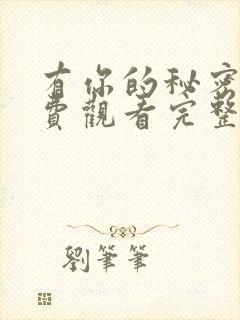 有你的秘密
費觀看完整
劉筆筆